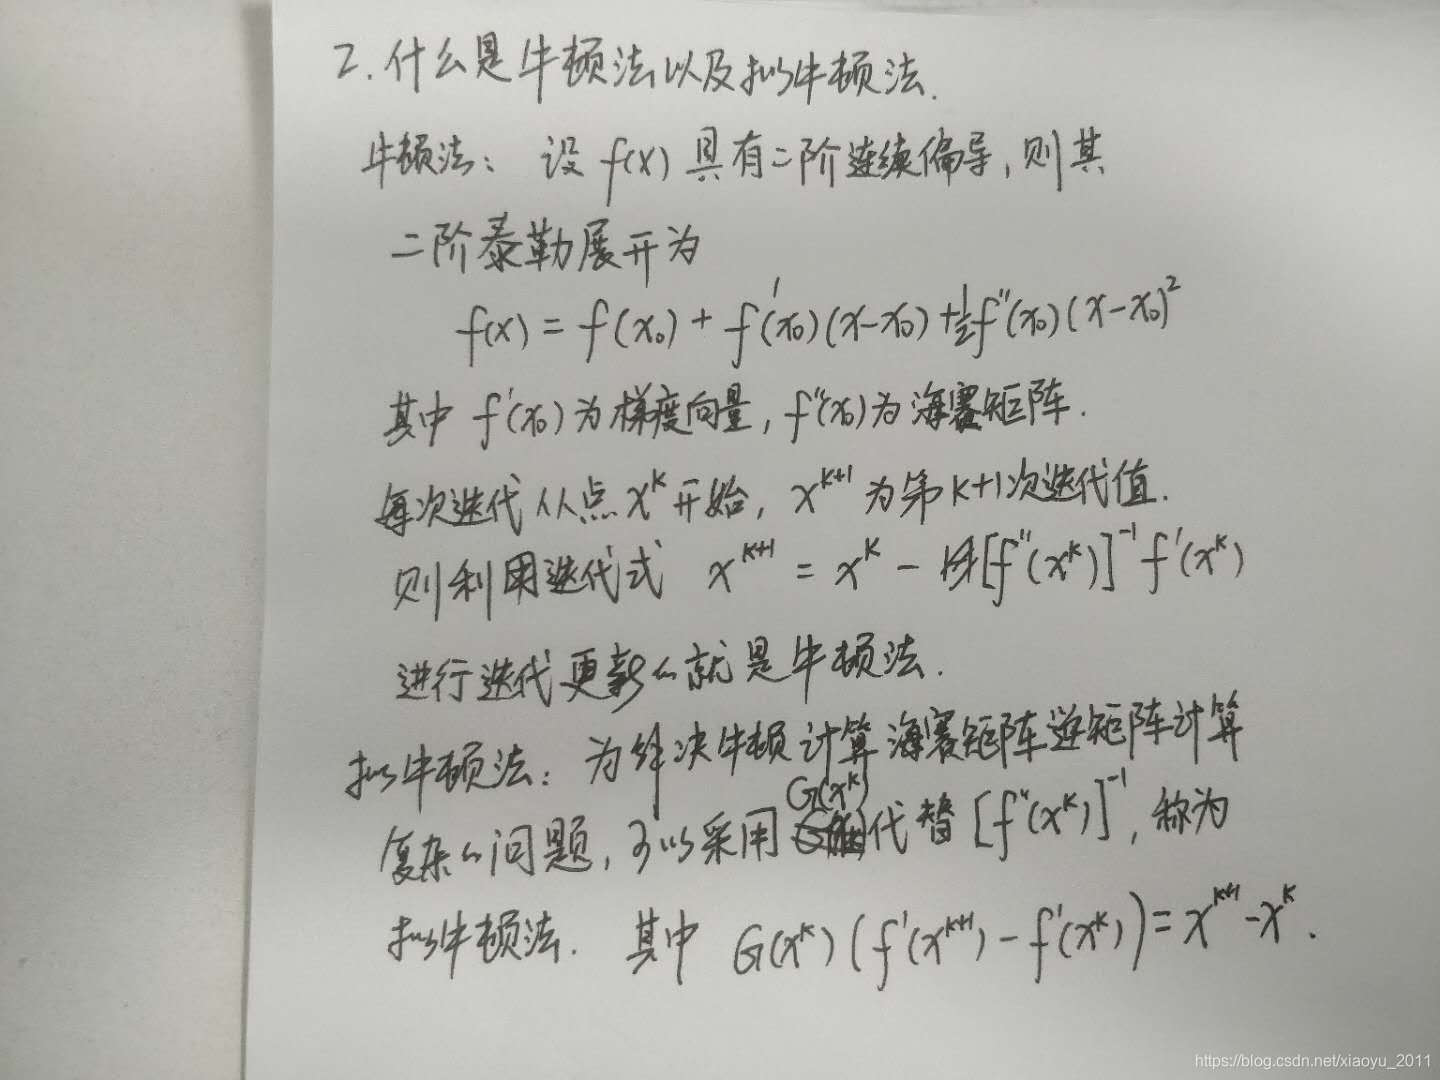 2. 什么是牛顿法以及拟牛顿法.
牛顿法: 设 f(x) 具有二阶连续偏导, 则其
二阶泰勒展开为
f(x) = f(x₀) + f'(x₀)(x-x₀) + ½f''(x₀)(x-x₀)²
其中 f'(x₀) 为梯度向量, f''(x₀) 为海塞矩阵.
每次迭代从点 xᵏ 开始, xᵏ⁺¹ 为第 k+1 次迭代值.
则利用迭代式 xᵏ⁺¹ = xᵏ - [f''(xᵏ)]⁻¹ f'(xᵏ)
进行迭代更新的就是牛顿法.
拟牛顿法: 为解决牛顿计算海塞矩阵逆矩阵计算
复杂的问题, 可以采用 G(xᵏ) 代替 [f''(xᵏ)]⁻¹, 称为
拟牛顿法. 其中 G(xᵏ)(f'(xᵏ⁺¹) - f'(xᵏ)) = xᵏ⁺¹ - xᵏ.
https://blog.csdn.net/xiaoyu_2011